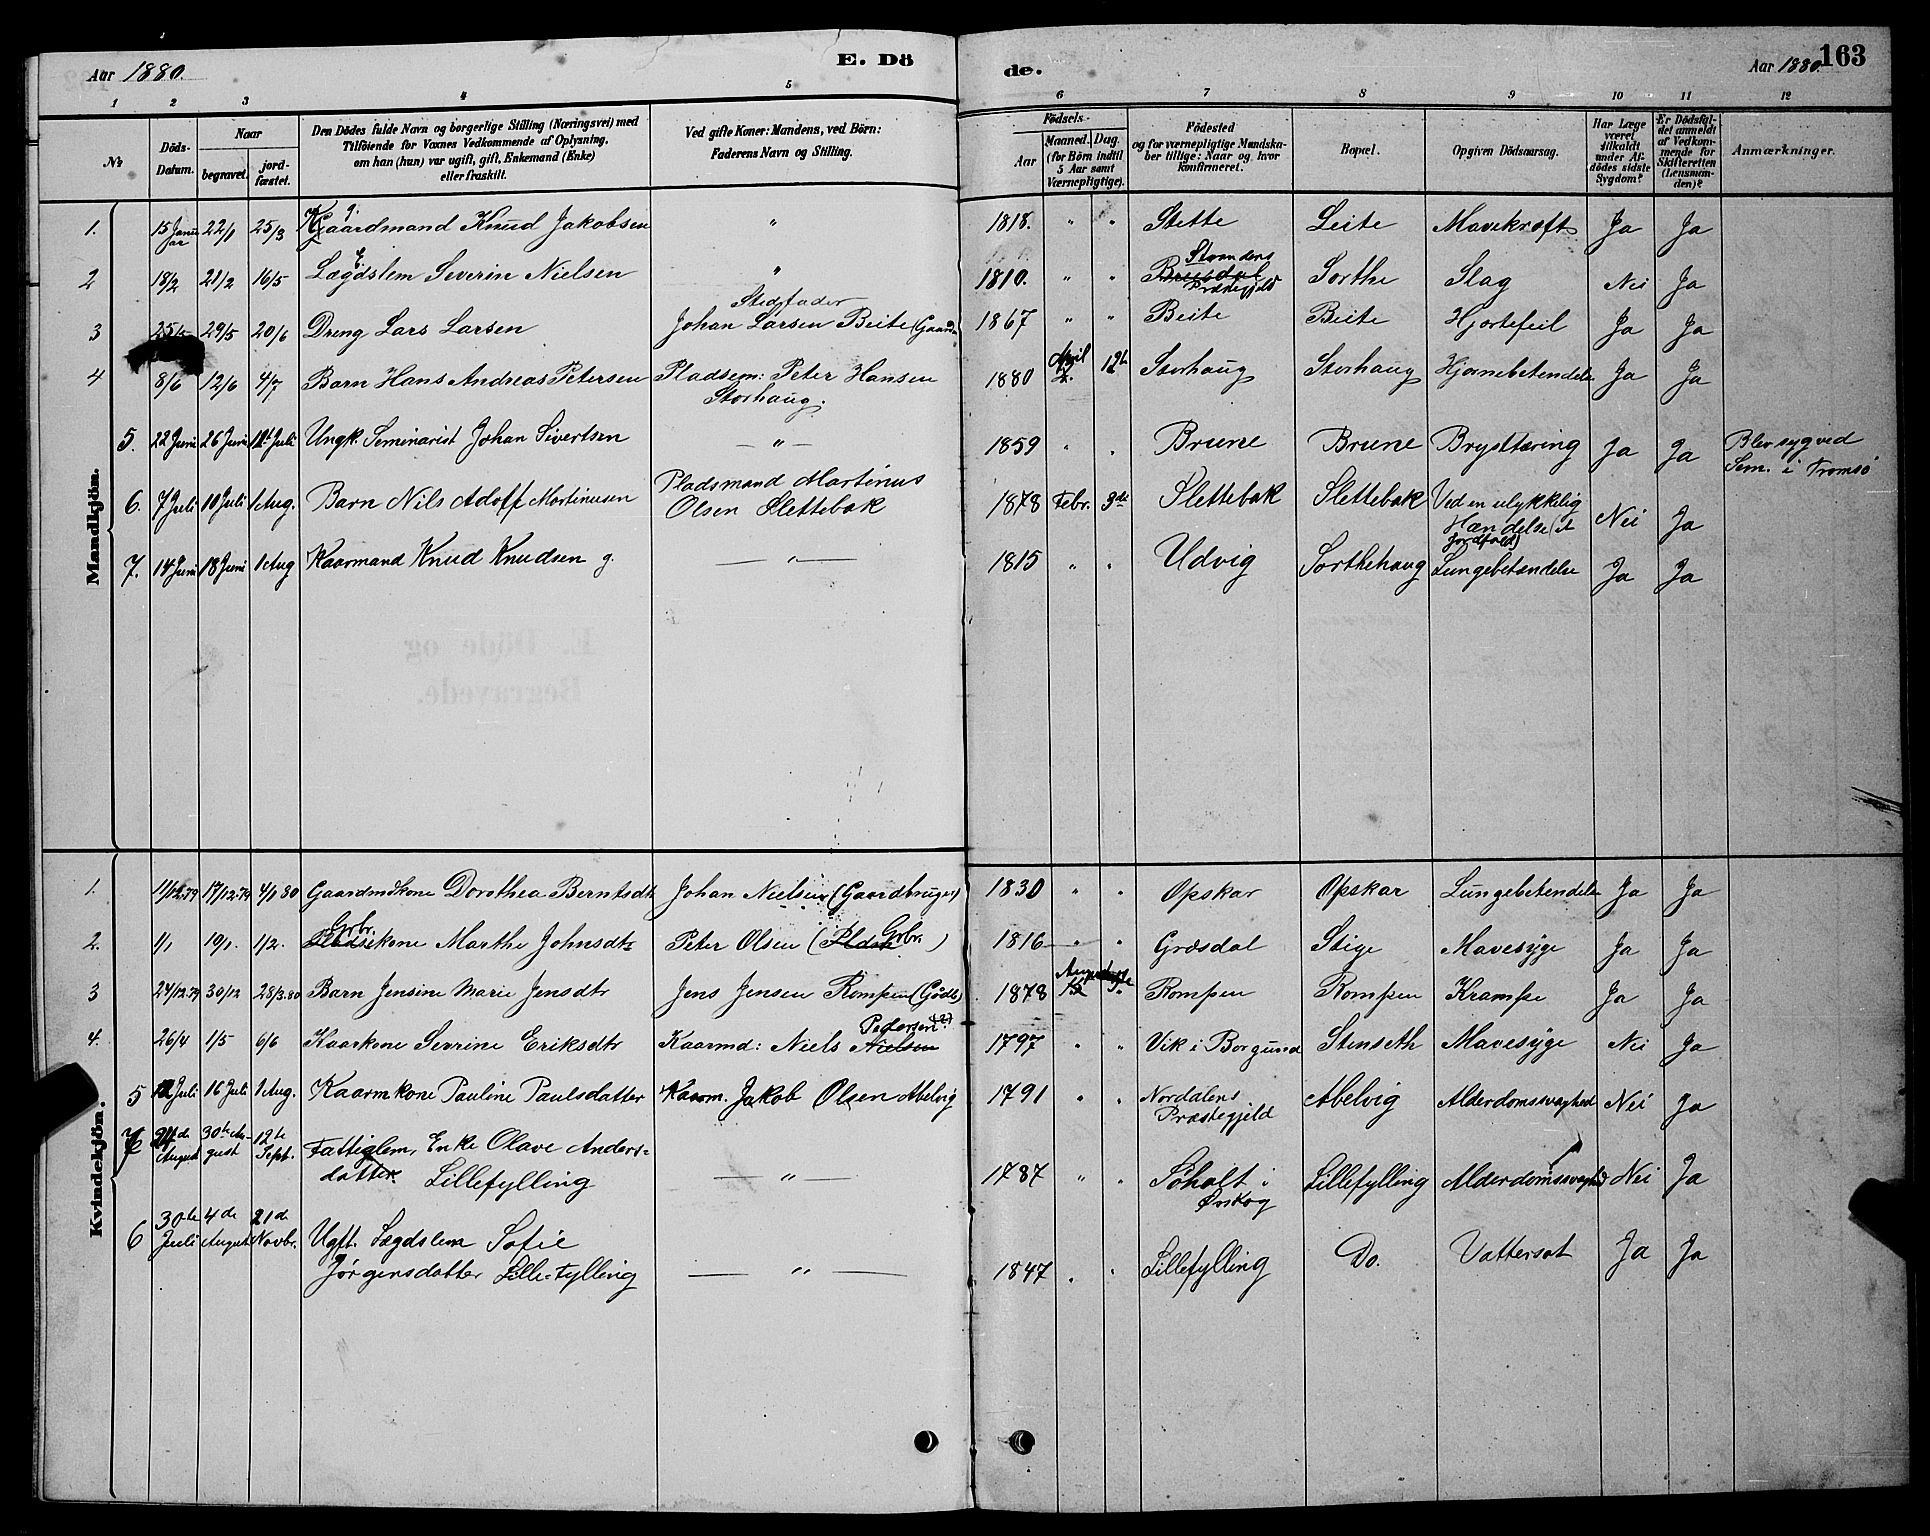 Aar 1880.
E. Dö
de.
Aar 1880.
163
1 2 3 4 5 6 7 8 9 10 11 12
No
Döds-Datum.
Naar
begravet.
jord-fæstet.
Den Dödes fulde Navn og borgerlige Stilling (Næringsvei) med
Tilföiende for Voxnes Vedkommende af Oplysning,
om han (hun) var ugift, gift, Enkemand (Enke)
eller fraskilt.
Ved gifte Koner: Mandens, ved Börn:
Faderens Navn og Stilling.
Födsels-
Aar
Maaned. Dag.
(for Börn indtil
5 Aar samt
Værnepligtige).
Födested
og for værnepligtige Mandska-
ber tillige: Naar og hvor
konfirmeret.
Bopæl.
Opgiven Dödsaarsag.
Har Læge
været
tilkaldt
under Af-
dödes sidste
Sygdom?
Er Dödsfal-
det anmeldt
af Vedkom-
mende for
Skifteretten
(Lensman-
den)?
Anmærkninger.
Mandkjön.
1. 15 Januar 22/1 25/3 Kaardmand Knud Jakobsen g. " 1818. " " Stette Leite Mavekræft Ja Ja
2 18/2 21/2 16/5 Lægdslem Severin Nielsen E. " 1810. " " Strandens Præstegjeld Sorthe Slag Nei Ja
3 25/5 29/5 20/6 Dreng Lars Larsen Stedfader Johan Larsen Beite (Gaardm 1867 " " Beite Beite Hjertefeil Ja Ja
4 8/6 12/6 4/7 Barn Hans Andreas Petersen Pladsem: Peter Hansen
Storhaug.
1880 April 12te Storhaug Storhaug Hjernebetendelse Ja Ja
5. 22 Juni 26 Juni Juli Ungk. Seminarist Johan Sivertsen — " — 1859 " " Brune Brune Brysttæring Ja Ja Blev syg ved
Sem. i Tromsö
6. 7 Juli 10 Juli 1 Aug. Barn Nils Adoff Martinusen Pladsmand Martinus
Olsen Slettebak
1878 Febr. 3de Slettebak Slettebak Ved en ulykkelig
Hændelse (et
Jordfald)
Nei Ja
7. 14 Juni 18 Juni 1 Aug Kaarmand Knud Knudsen g. — " — 1815 " " Udvig Sorthehaug Lungebetændelse Ja Ja
Kvindekjön.
1. 11/12.79 17/12.79 4/1 80 Gaardmdkone Dorothea Berntsdtr Johan Nielsen (Gaardbruger) 1830 " " Opskar Opskar Lungebetendelse Ja Ja
2. 1/1 10/1. 1/2. Grbr.kone Marthe Johnsdtr Peter Olsen (Grbr.) 1816 " " Græsdal Stige Mavesyge Ja Ja
3 24/12.79 30/12 28/3.80 Barn Jensine Marie Jensdtr Jens Jensen Rompen (Gdbr) 1878 August Rompen Rompen Krampe Ja Ja
4. 26/4 1/5 6/6 Kaarkone Severine Eriksdtr Kaarmd: Niels Nielsen Pedersen (?) 1797 " " Vik i Borgund Stenseth Mavesyge Nei Ja
5 Juli 16 Juli 1 Aug. Kaarmkone Pauline Paulsdatter Kaarm. Jakob Olsen Abelvig 1791 " " Nordalens
Præstegjeld
Abelvig Alderdomssvaghed Nei Ja
7 24de August 30te August 12te Sept. Fattiglem, Enke Olave Anders-
datter. Lillefylling
— " — 1787 " " Söholt i
Ørskog
Lillefylling Alderdomssvaghed Nei Ja
6 30te Juli 4de August 21de Novbr. Ugft. Lægdslem Sofie
Jørgensdatter Lille-Fylling
— " — 1847 " " Lillefylling Do. Vattersot Ja Ja